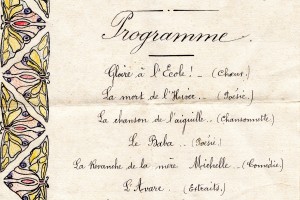 Programme.
Gloire à l'Ecole! - (Chœur.)
La mort de l'Hiver.. - (Poésie.)
La chanson de l'aiguille.. (Chansonnette)
Le Baba.. (Poésie.)
La Revanche de la mère Michelle.. (Comédie.)
L'Avare.. (Extraits.)